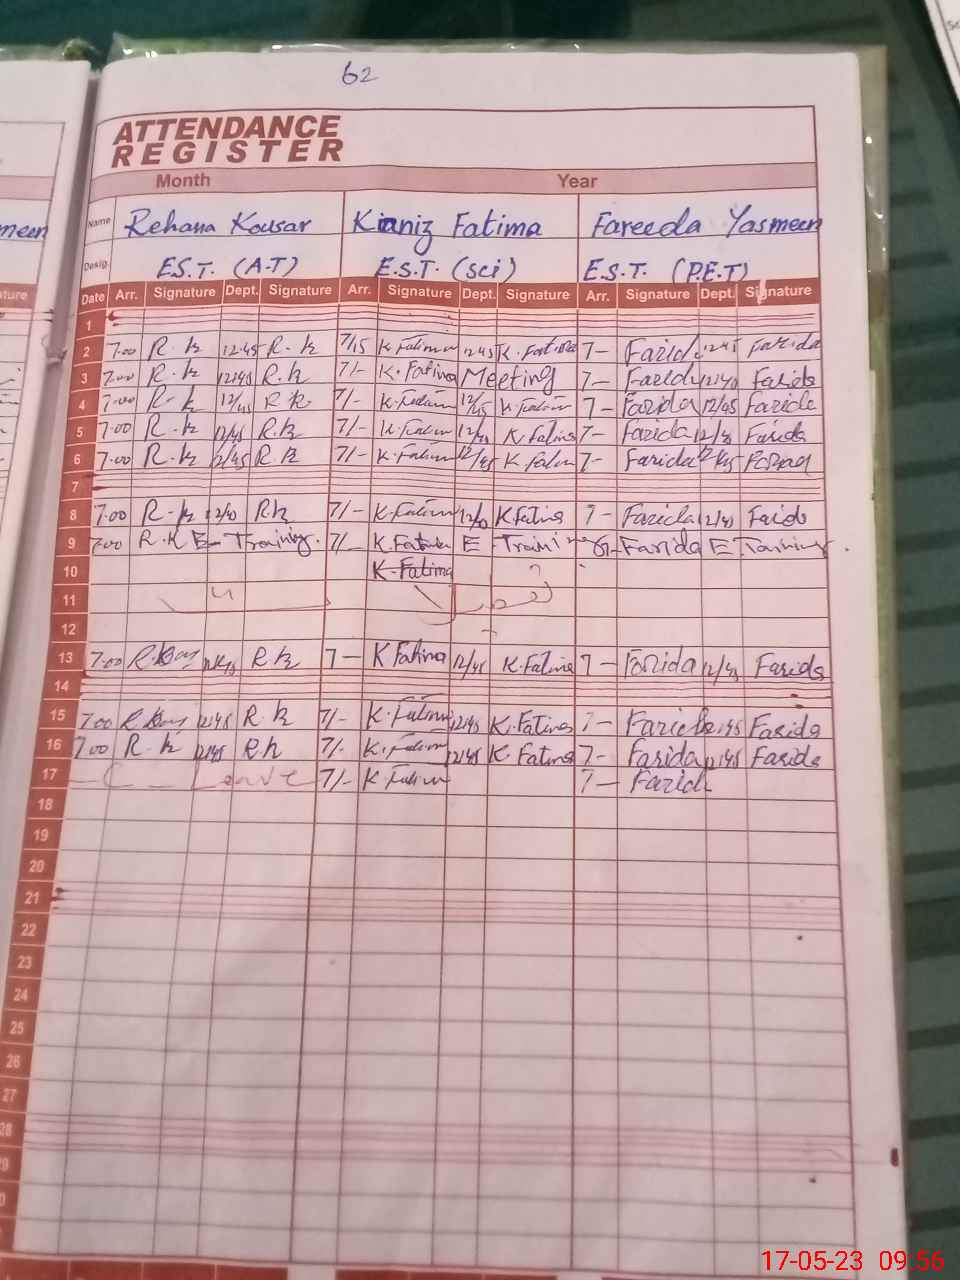 62
ATTENDANCE
REGISTER
Month Year
meen Name Rehana Kousar Kaniz Fatima Fareeda Yasmeen
Desig. E.S.T. (A.T) E.S.T. (sci) E.S.T. (P.E.T)
ature Date Arr. Signature Dept. Signature Arr. Signature Dept. Signature Arr. Signature Dept. Signature
1
2 7.00 R.k 12.45 R.k 7/15 K.Fatima 1245 K.Fatima 7- Farid 1245 Farida
3 7.00 R.k 12/45 R.k 7/- K.Fatima Meeting 7- Farida 12/40 Farida
4 7.00 R.k 12/45 R.k 7/- K.Fatima 12/45 K.Fatima 7- Farida 12/45 Farida
5 7.00 R.k 12/45 R.k 7/- K.Fatima K.Fatima 7- Farida Farida
6 7.00 R.k 12/45 R.k 7/- K.Fatima 12/45 K.Fatima 7- Farida 12/45
7
8 7.00 R.k 12/40 R.k 7/- K.Fatima 12/40 K.Fatima 7- Farida 12/40 Farida
9 7.00 R.K E- Training. 7/- K.Fatima E Training Farida E Training.
10 K-Fatima
11
12
13 7.00 12/45 R.k 7- K Fatima 12/45 K.Fatima 7- Farida 12/45 Farida
14
15 7.00 12/45 R.k 7/- K.Fatima 12/45 K.Fatima 7- Farida 12/45 Farida
16 7.00 R.k 12/45 R.k 7/- K.Fatima 12/45 K.Fatima 7- Farida 12/45 Farida
17 Leave 7/- K Fatima 7- Farida
18
19
20
21
22
23
24
25
26
27
28
17-05-23 09:56